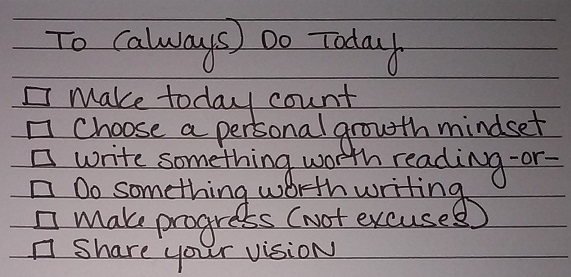 To (always) Do Today
Make today count
Choose a personal growth mindset
Write something worth reading -or-
Do something worth writing
Make progress (not excuses)
Share your vision